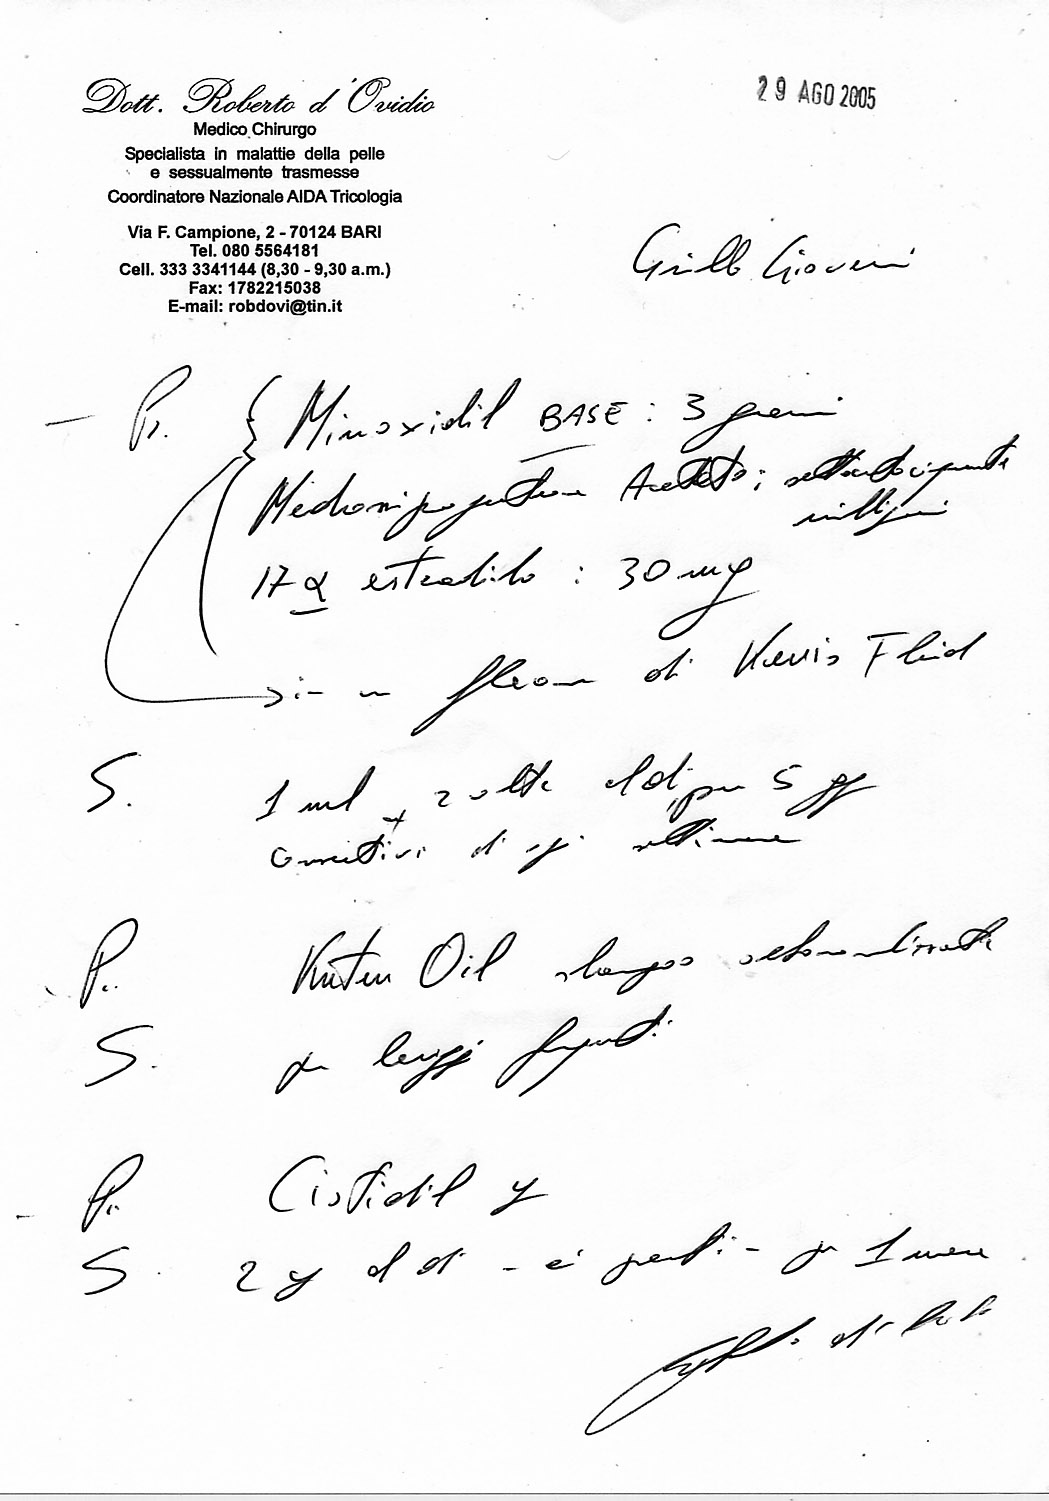 Dott. Roberto d'Ovidio
Medico Chirurgo
Specialista in malattie della pelle
e sessualmente trasmesse
Coordinatore Nazionale AIDA Tricologia
Via F. Campione, 2 - 70124 BARI
Tel. 080 5564181
Cell. 333 3341144 (8,30 - 9,30 a.m.)
Fax: 1782215038
E-mail: robdovi@tin.it
29 AGO 2005
Grillo Giovanni
P. Minoxidil BASE : 3 grammi
Acetato;
milligrammi
17 α estradiolo : 30 mg
in un flacone di Fluid
S. 1 ml x 2 volte al dì, per 5 gg
consecutivi di ogni settimana
P. Oil shampoo
S. per lavaggi frequenti
P. Cistidil
S. 2 al dì - ai pasti - per 1 mese